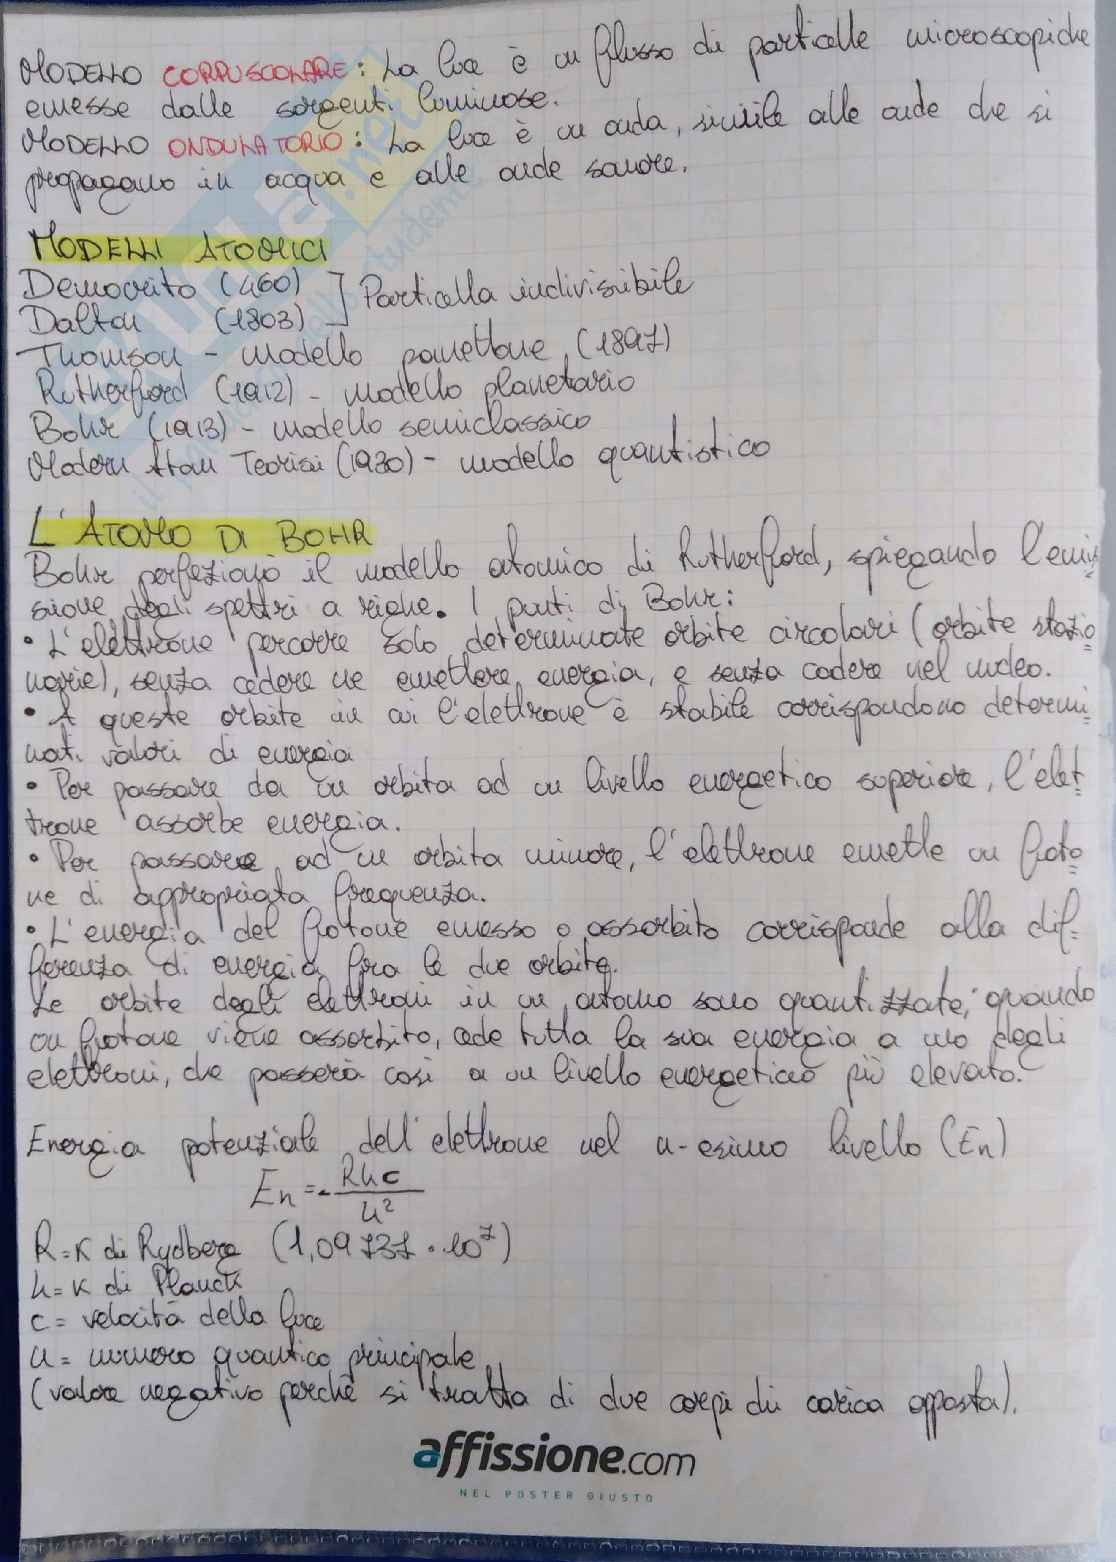 MODELLO CORPUSCOLARE: La luce è un flusso di particelle microscopiche
emesse dalle sorgenti luminose.
MODELLO ONDULATORIO: La luce è un onda, simile alle onde che si
propagano in acqua e alle onde sonore.
MODELLI ATOMICI
Democrito (460) ] Particella indivisibile
Dalton (1803)
Thomson - modello panettone (1897)
Rutherford (1912) - modello planetario
Bohr (1913) - modello semiclassico
Modern Atom (1930) - modello quantistico
L'ATOMO DI BOHR
Bohr perfezionò il modello atomico di Rutherford, spiegando l'emis
sione degli spettri a righe. I punti di Bohr:
• L'elettrone percorre solo determinate orbite circolari (orbite stazio
narie), senza cedere ne emettere energia, e senza cadere nel nucleo.
• A queste orbite in cui l'elettrone è stabile corrispondono determi
nati valori di energia
• Per passare da un orbita ad un livello energetico superiore, l'elet
trone assorbe energia.
• Per passare ad un orbita minore, l'elettrone emette un foto
ne di appropriata frequenza.
• L'energia del fotone emesso o assorbito corrisponde alla dif
ferenza di energia fra le due orbite.
Le orbite degli elettroni in un atomo sono quantizzate; quando
un fotone viene assorbito, cede tutta la sua energia a uno degli
elettroni, che passerà così a un livello energetico più elevato.
Energia potenziale dell'elettrone nel n-esimo livello (En)
En = - Rhc / n²
R = K di Rydberg (1,09737 · 10⁷)
h = K di Planck
c = velocità della luce
n = numero quantico principale
(valore negativo perchè si tratta di due corpi di carica opposta).
affissione.com
NEL POSTER GIUSTO